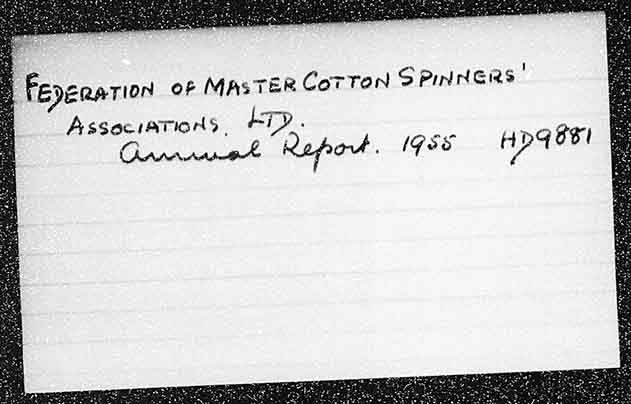 FEDERATION OF MASTER COTTON SPINNERS'
ASSOCIATIONS, LTD.
Annual Report. 1955 HD9881